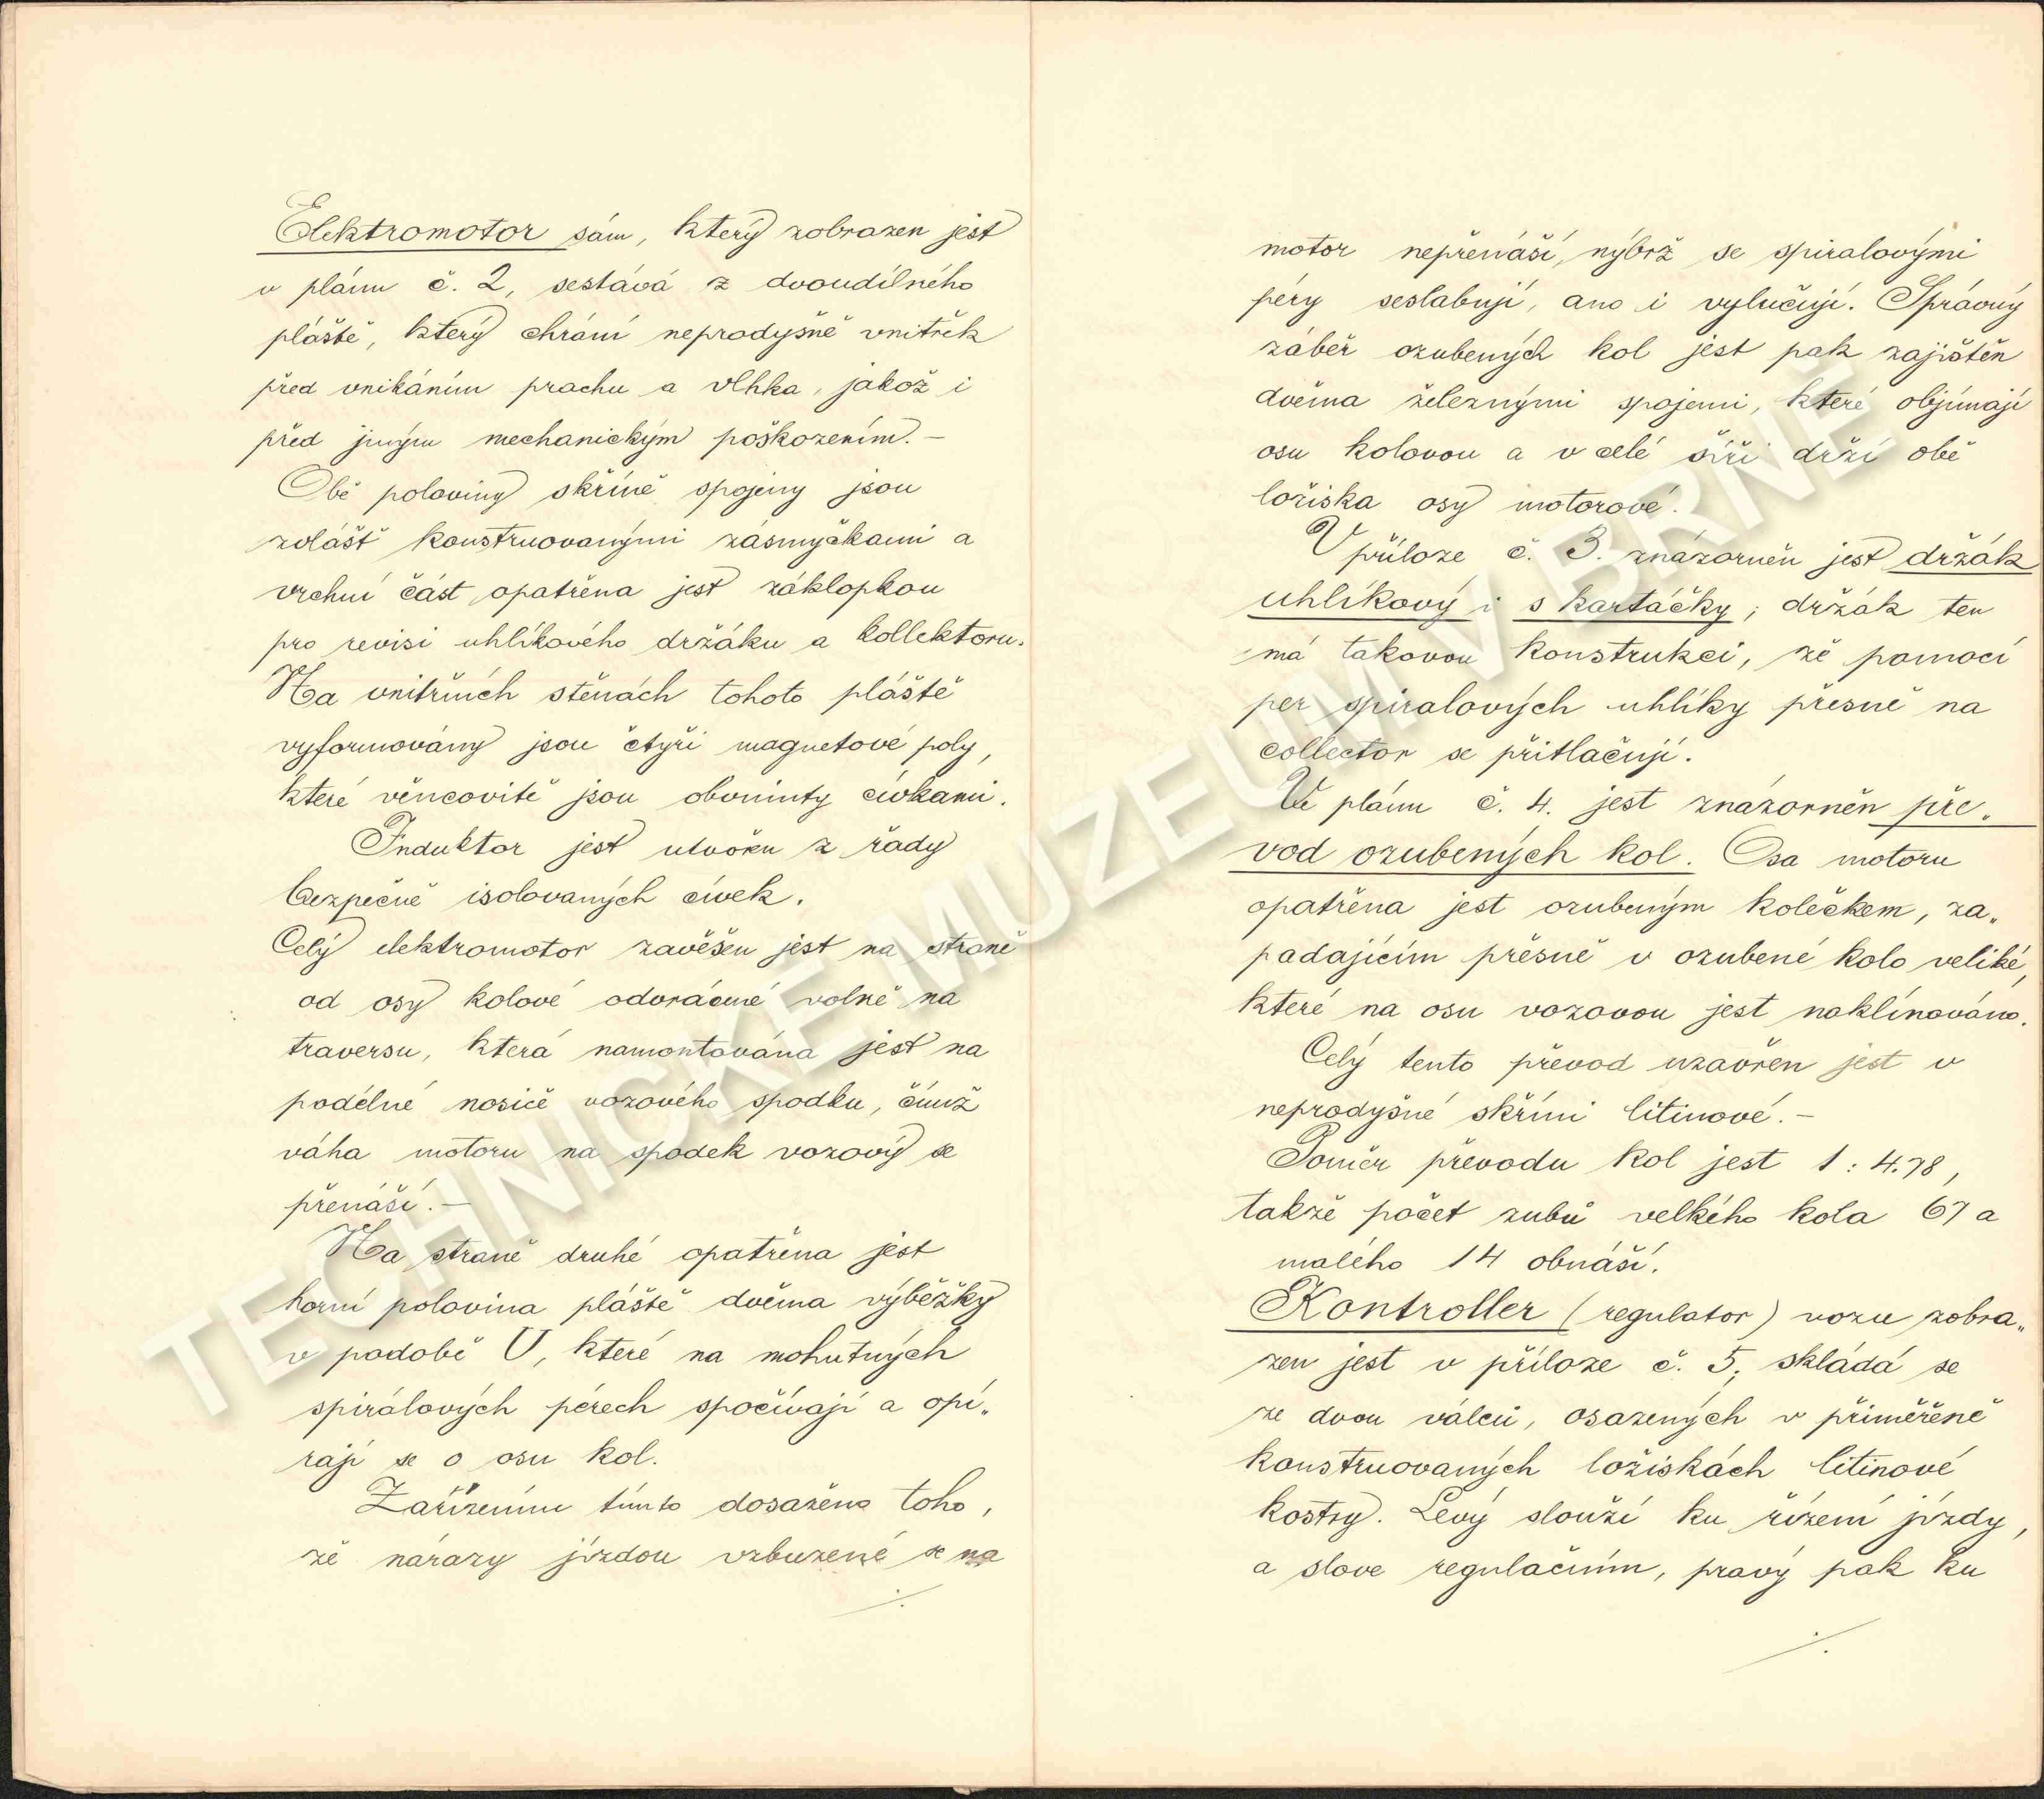 Elektromotor sám, který zobrazen jest
v plánu č. 2, sestává z dvoudílného
pláště, který chrání neprodyšně vnitřek
před vnikáním prachu a vlhka, jakož i
před jiným mechanickým poškozením. –
Obě poloviny skříně spojeny jsou
zvlášť konstruovanými zásmyčkami a
vrchní část opatřena jest záklopkou
pro revisi uhlíkového držáku a kollektoru.
Na vnitřních stěnách tohoto pláště
vyformovány jsou čtyři magnetové poly,
které věncovitě jsou obvinuty cívkami.
Induktor jest utvořen z řady
bezpečně isolovaných cívek.
Celý elektromotor zavěšen jest na straně
od osy kolové odvrácené volně na
traversu, která namontována jest na
podélné nosiče vozového spodku, čímž
váha motoru na spodek vozový se
přenáší. –
Na straně druhé opatřena jest
horní polovina pláště dvěma výběžky
v podobě U, které na mohutných
spirálových pérech spočívají a opí„
rají se o osu kol.
Zařízením tímto dosaženo toho,
že nárazy jízdou vzbuzené se na
./.
motor nepřenáší, nýbrž se spiralovými
péry seslabují, ano i vylučují. Správný
záběr ozubených kol jest pak zajištěn
dvěma železnými spojemi, které objímají
osu kolovou a v celé šíři drží obě
ložiska osy motorové.
V příloze č. 3. znázorněn jest držák
uhlíkový i s kartáčky; držák ten
má takovou konstrukci, že pomocí
per spiralových uhlíky přesně na
collector se přitlačují.
Ve plánu č. 4. jest znázorněn pře„
vod ozubených kol. Osa motoru
opatřena jest ozubeným kolečkem, za„
padajícím přesně v ozubené kolo veliké,
které na osu vozovou jest naklínováno.
Celý tento převod uzavřen jest v
neprodyšné skříni litinové. –
Poměr převodu kol jest 1 : 4.78,
takže počet zubů velkého kola 67 a
malého 14 obnáší.
Kontroller (regulator) vozu zobra„
zen jest v příloze č. 5; skládá se
ze dvou válců, osazených v přiměřeně
konstruovaných ložiskách litinové
kostry. Levý slouží ku řízení jízdy,
a slove regulačním, pravý pak ku
./.
TECHNICKÉ MUZEUM V BRNĚ